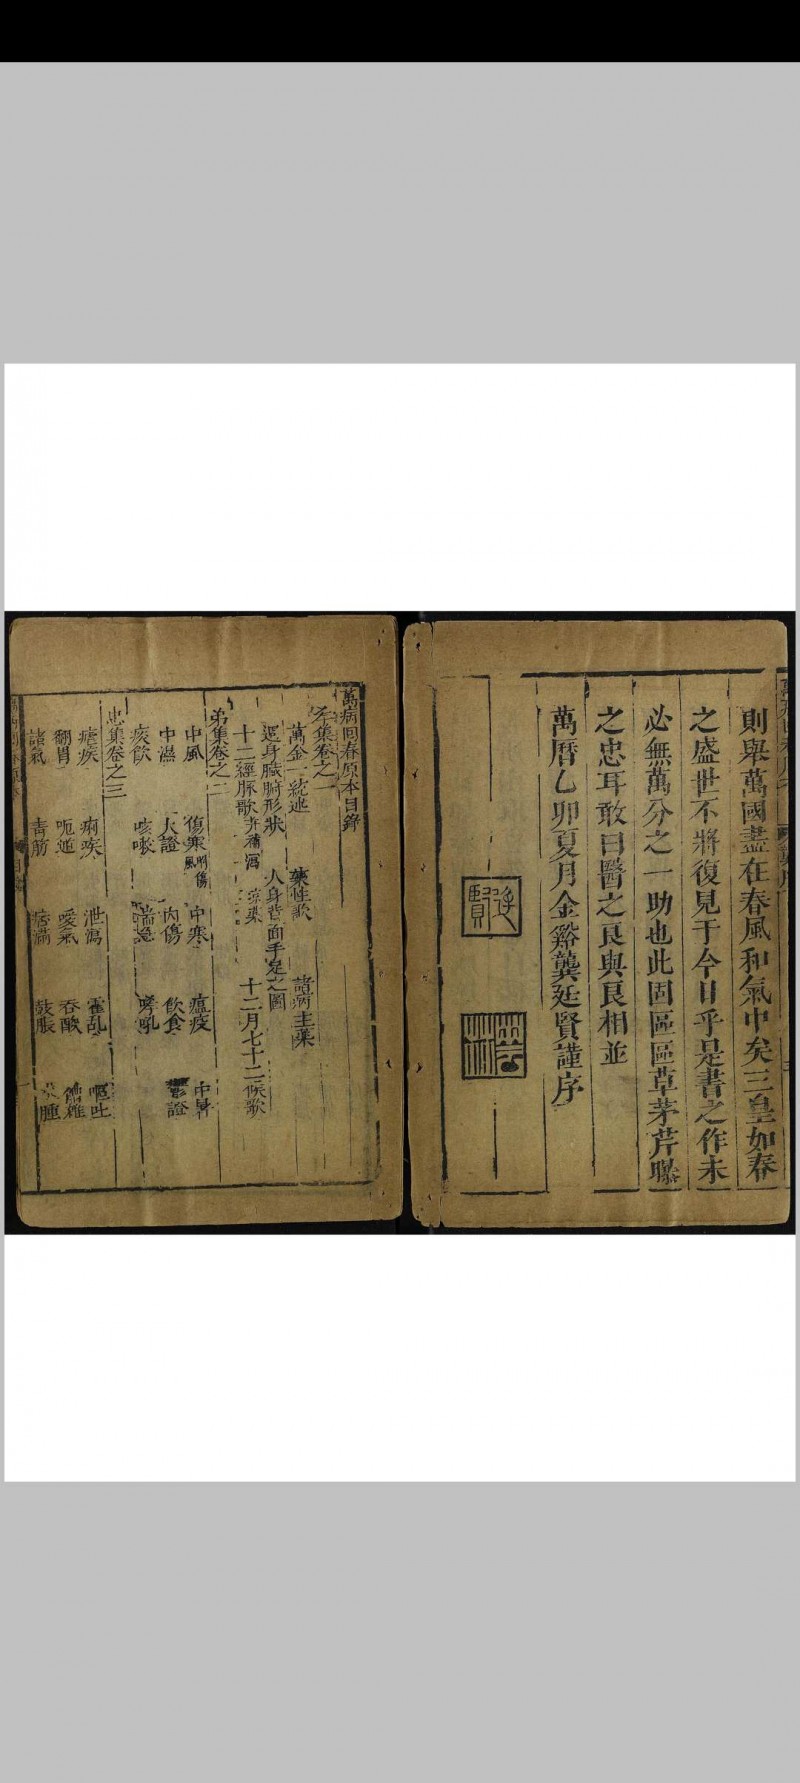 則舉萬國盡在春風和氣中矣三皇如春
之盛世不將復見于今日乎是書之作未
必無萬分之一助也此固區區草茅芹曝
之忠耳敢曰醫之良與良相並
萬曆乙卯夏月金谿龔廷賢謹序
廷賢
萬病回春原本目錄
孝集卷之一
萬金一統述 藥性歌 諸病主藥
周身臟腑形狀 人身背面手足之圖
十二經脉歌 十二月七十二候歌
弟集卷之二
中風 傷寒 附傷風 中寒 瘟疫 中暑
中濕 火證 內傷 飲食 鬱證
痰飲 咳嗽 喘急 哮吼
忠集卷之三
瘧疾 痢疾 泄瀉 霍亂 嘔吐
翻胃 呃逆 噯氣 吞酸 嘈雜
諸氣 青筋 痞滿 鼓脹 水腫